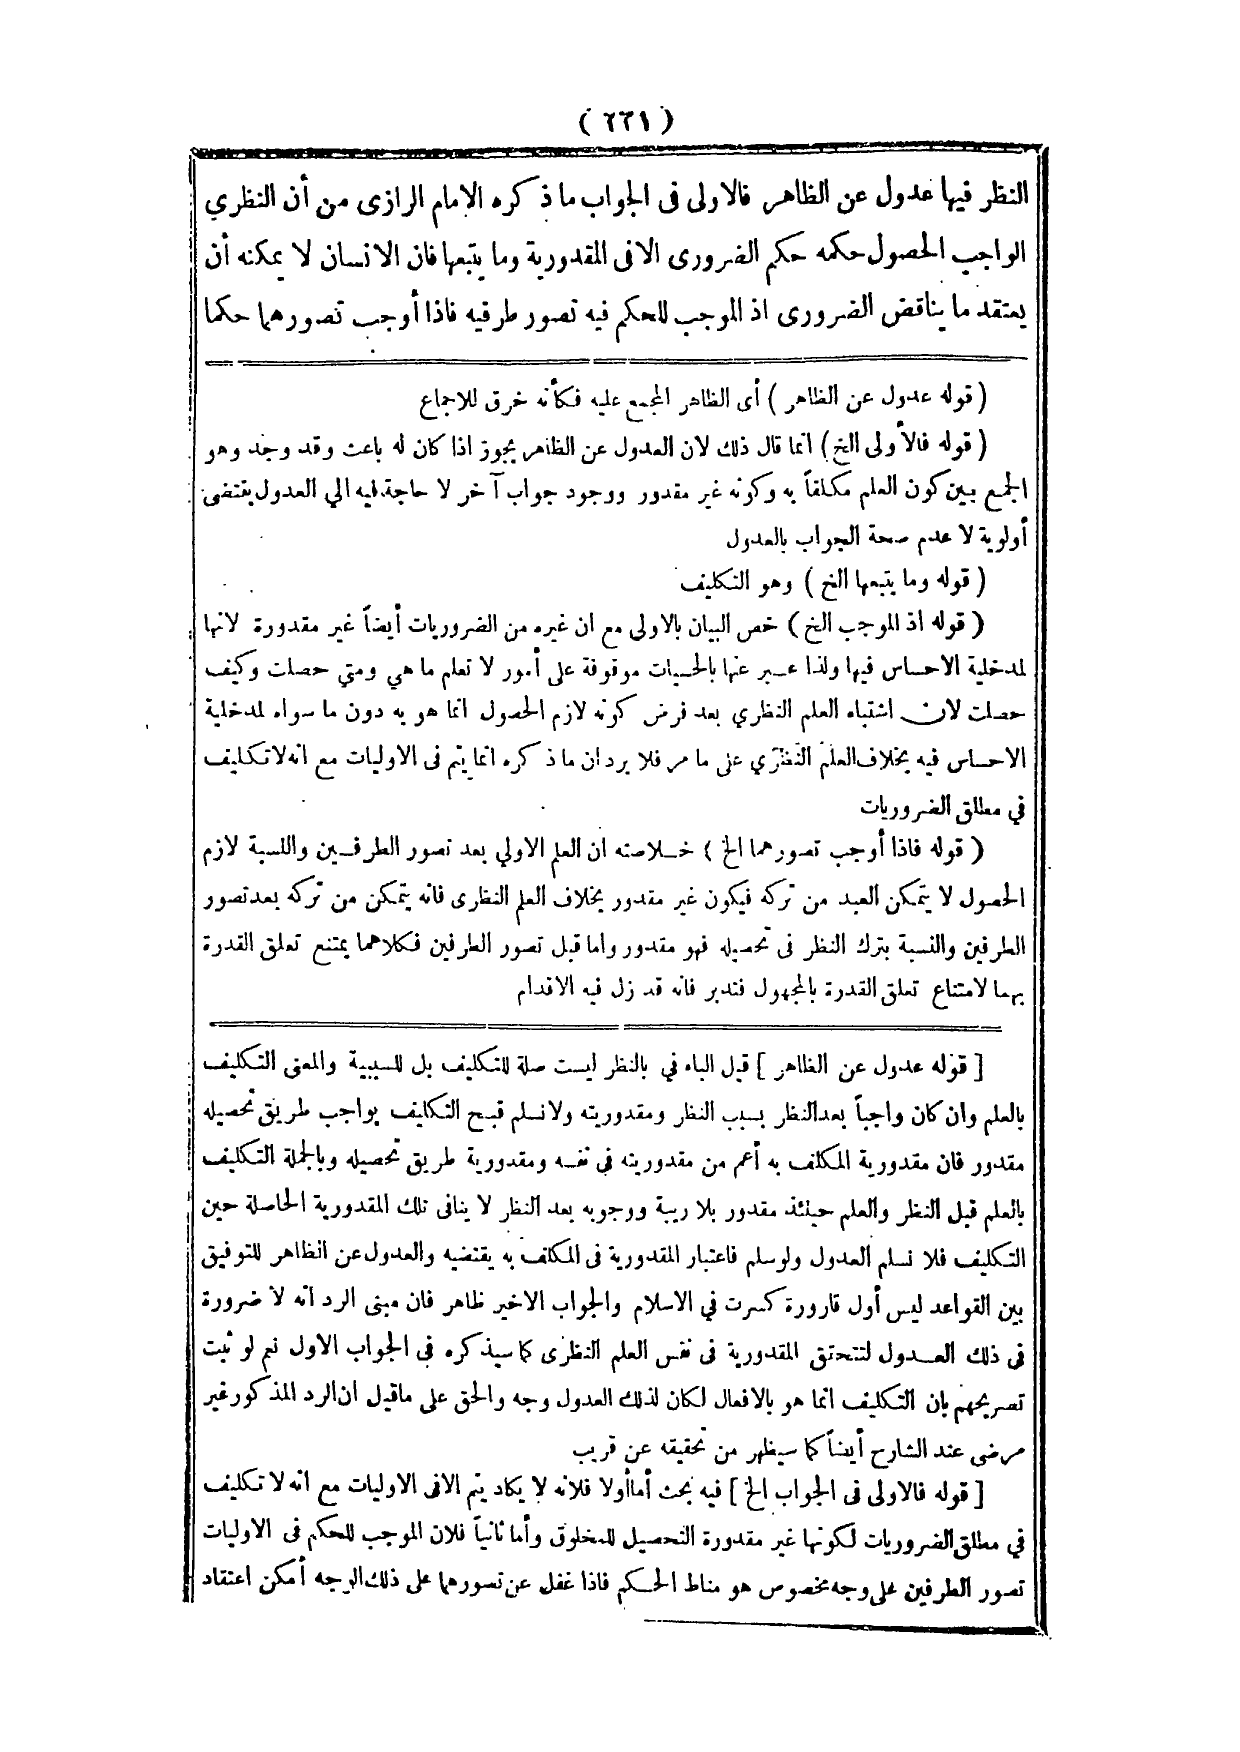 ( ٢٢١ )
النظر فيها عدول عن الظاهر فالاولى فى الجواب ما ذكره الامام الرازى من أن النظري
الواجب الحصول حكمه حكم الضرورى الا فى المقدورية وما يتبعها فان الانسان لا يمكنه أن
يعتقد ما يناقض الضرورى اذ الموجب للحكم فيه تصور طرفيه فاذا أوجب تصورهما حكما
( قوله عدول عن الظاهر ) أى الظاهر المجمع عليه فكأنه خرق للاجماع
( قوله فالأولى الخ ) انما قال ذلك لان العدول عن الظاهر يجوز اذا كان له باعث وقد وجد وهو
الجمع بين كون العلم مكلفاً به وكونه غير مقدور ووجود جواب آخر لا حاجة فيه الي العدول يقتضى
أولوية لا عدم صحة الجواب بالعدول
( قوله وما يتبعها الخ ) وهو التكليف
( قوله اذ الموجب الخ ) خص البيان بالاولى مع ان غيره من الضروريات أيضاً غير مقدورة لانها
لمدخلية الاحساس فيها ولذا عبر عنها بالحسيات موقوفة على أمور لا تعلم ما هي ومتى حصلت وكيف
حصلت لان اشتباه العلم النظري بعد فرض كونه لازم الحصول انما هو به دون ما سواه لمدخلية
الاحساس فيه بخلاف العلم النظري على ما مر فلا يرد ان ما ذكره انما يتم فى الاوليات مع انه لا تكليف
في مطلق الضروريات
( قوله فاذا أوجب تصورهما الخ ) خلاصته ان العلم الاولي بعد تصور الطرفين والنسبة لازم
الحصول لا يتمكن العبد من تركه فيكون غير مقدور بخلاف العلم النظرى فانه يتمكن من تركه بعد تصور
الطرفين والنسبة بترك النظر فى تحصيله فهو مقدور واما قبل تصور الطرفين فكلاهما يمتنع تعلق القدرة
بهما لامتناع تعلق القدرة بالمجهول فتدبر فانه قد زل فيه الاقدام
[ قوله عدول عن الظاهر ] قيل الباء في بالنظر ليست صلة للتكليف بل للسببية والمعنى التكليف
بالعلم وان كان واجباً بعد النظر بسبب النظر ومقدوريته ولا نسلم قبح التكليف بواجب طريق تحصيله
مقدور فان مقدورية المكلف به أعم من مقدوريته فى نفسه ومقدورية طريق تحصيله وبالجملة التكليف
بالعلم قبل النظر والعلم حينئذ مقدور بلا ريبة ووجوبه بعد النظر لا ينافى تلك المقدورية الحاصلة حين
التكليف فلا نسلم العدول ولو سلم فاعتبار المقدورية فى المكلف به يقتضيه والعدول عن الظاهر للتوفيق
بين القواعد ليس أول قارورة كسرت في الاسلام والجواب الاخير ظاهر فان مبنى الرد انه لا ضرورة
فى ذلك العدول لتحقق المقدورية فى نفس العلم النظرى كما سيذكره فى الجواب الاول نعم لو ثبت
تصريحهم بان التكليف انما هو بالافعال لكان لذلك العدول وجه والحق على ماقيل ان الرد المذكور غير
مرضى عند الشارح أيضاً كما سيظهر من تحقيقه عن قريب
[ قوله فالاولى فى الجواب الخ ] فيه بحث أما أولا فلانه لا يكاد يتم الا فى الاوليات مع انه لا تكليف
في مطلق الضروريات لكونها غير مقدورة التحصيل للمخلوق وأما ثانياً فلان الموجب للحكم فى الاوليات
تصور الطرفين على وجه مخصوص هو مناط الحكم فاذا غفل عن تصورهما على ذلك الوجه أمكن اعتقاد